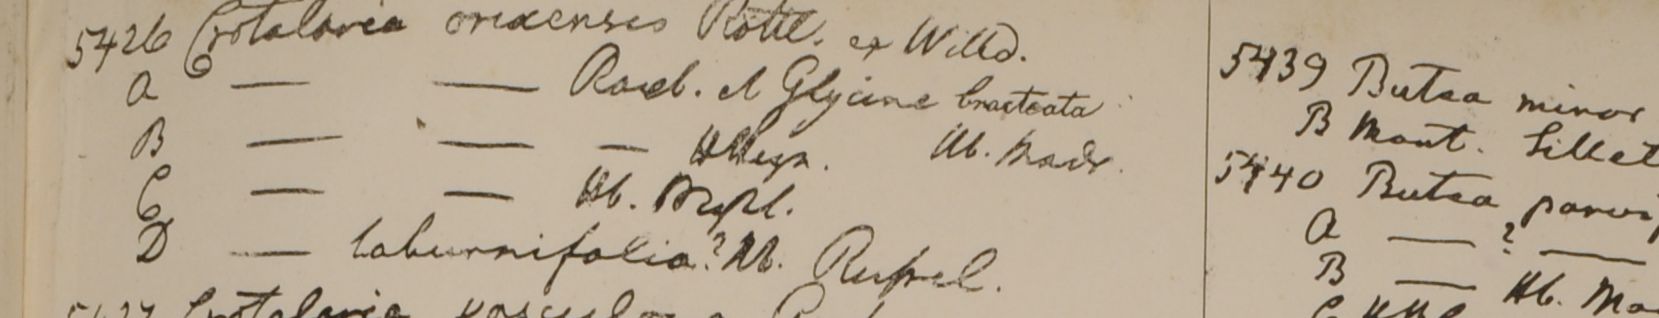 5426 Crotalaria orixensis Rottl. ex Willd.
A — — Roxb. et Glycine bracteata
B — — — HHeyn. Hb. Madr.
C — — Hb.
D — laburnifolia? Hb. Russel.
5427 Crotalaria
5439 Butea minor
B Mont. Sillet
5440 Butea parvi
A — ? —
B — Hb. Ma